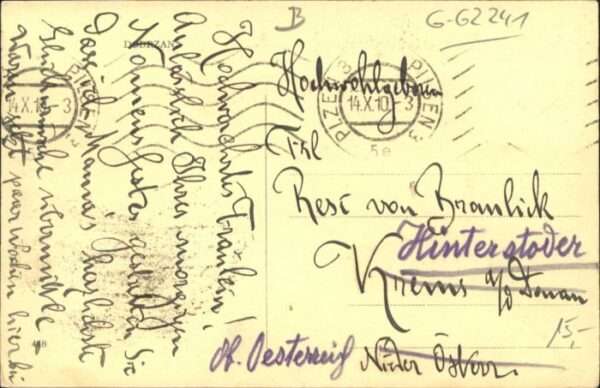 B
G-G2241
DOBRZAN
PLZEŇ 3 PILSEN 3
14.X.10 - 3
5e
Hochwohlgeboren
Frl
Resi von
Hinterstoder
Krems a/d Donau
Ob. Oesterreich
Nieder Österr.
15,-
Hochverehrtes Fräulein!
Anlässlich Ihres morgigen
Namensfestes gestatten Sie
dass ich Mamas herzlichste
Glückwünsche übermittle
paar Wochen hier bei